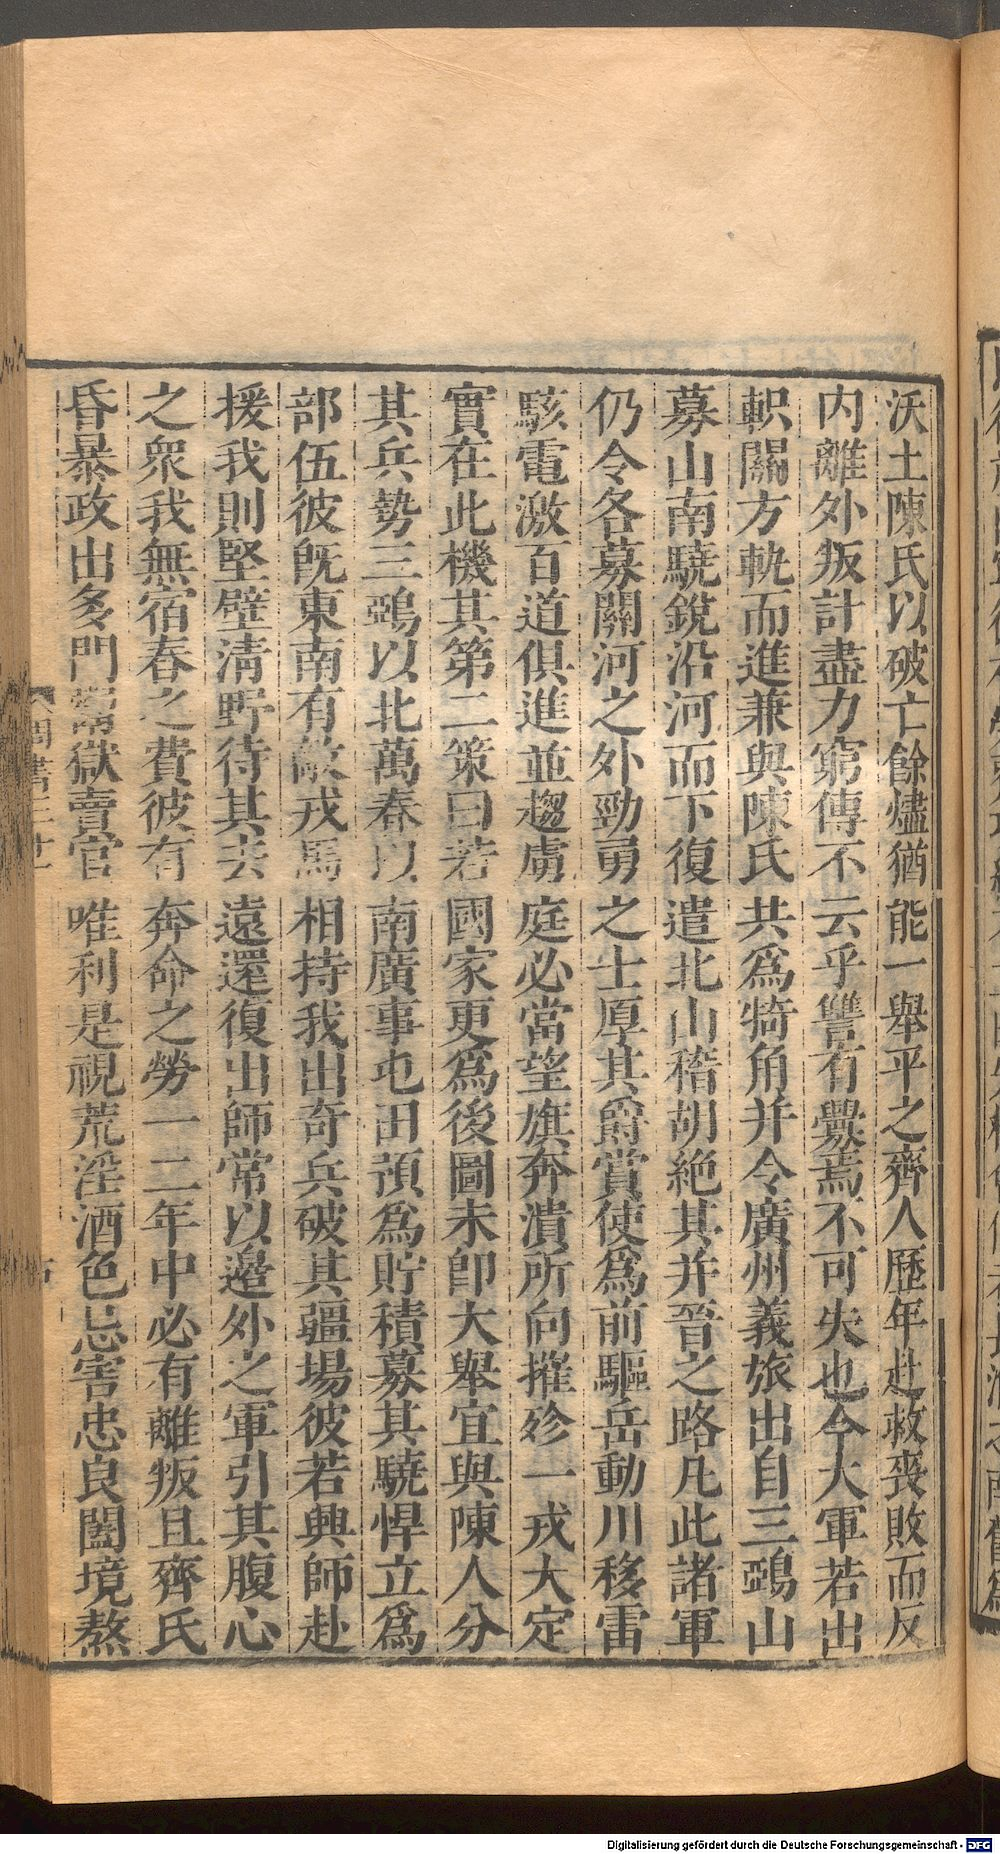 沃土陳氏以破亡餘燼猶能一舉平之齊人歷年赴救喪敗而反
内離外叛計盡力窮傳不云乎讐有釁焉不可失也今大軍若出
軹關方軌而進兼與陳氏共爲犄角并令廣州義旅出自三鵶山
募山南驍銳沿河而下復遣北山稽胡絶其并晉之路凡此諸軍
仍令各募關河之外勁勇之士厚其爵賞使爲前驅岳動川移雷
駭電激百道俱進並趨虜庭必當望旗奔潰所向摧殄一戎大定
實在此機其第二策曰若國家更爲後圖未卽大舉宜與陳人分
其兵勢三鵶以北萬春以南廣事屯田預爲貯積募其驍悍立爲
部伍彼旣東南有敵戎馬相持我出奇兵破其疆場彼若興師赴
援我則堅壁清野待其去遠還復出師常以邊外之軍引其腹心
之衆我無宿舂之費彼有奔命之勞一二年中必有離叛且齊氏
昏暴政出多門鬻獄賣官唯利是視荒淫酒色忌害忠良闔境熬
周書三十一
Digitalisierung gefördert durch die Deutsche Forschungsgemeinschaft - DFG